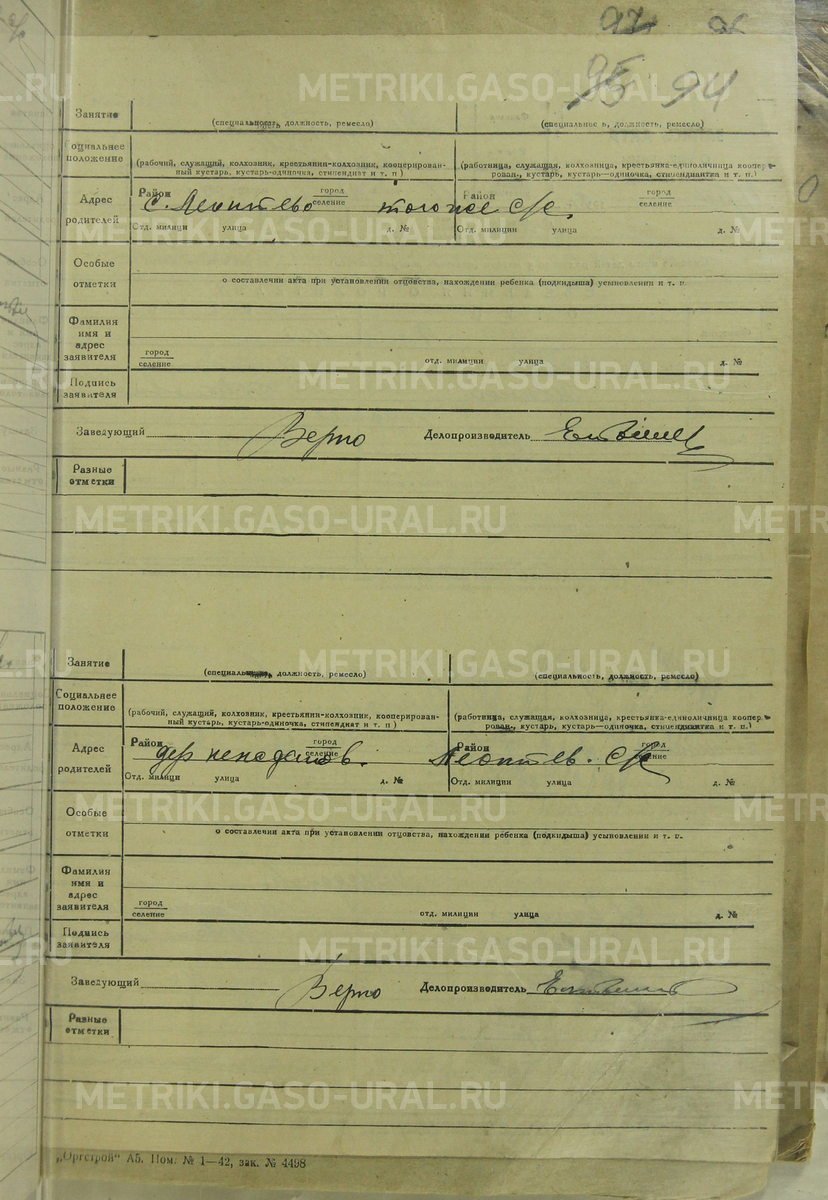 97 96
95 94
Занятие
(специальность, должность, ремесло) (специальнос ь, должность, ремесло)
Социальнее положение
(рабочий, служащий, колхозник, крестьянин-колхозник, кооперирован- (работница, служащая, колхозница, крестьянка-единоличница коопер
ный кустарь, кустарь-одиночка, стипендиат и т. п ) рован., кустарь, кустарь—одиночка, стипендиантка и т. п.)
Адрес родителей
Район город Район город
с. Леонтьево селение того же с/с. селение
Отд. милиции улица д. № Отд. милиции улица д. №
Особые отметки
о составлении акта при установлении отцовства, нахождении ребенка (подкидыша) усыновлении и т. п.
Фамилия имя и адрес заявителя
город
селение отд. милиции улица д. №
Подпись заявителя
Заведующий Верно Делопроизводитель
Разные отметки
Занятие
(специальность, должность, ремесло) (специальность, должность, ремесло)
Социальное положение
(рабочий, служащий, колхозник, крестьянин-колхозник, кооперирован- (работница, служащая, колхозница, крестьянка-единоличница коопер
ный кустарь, кустарь-одиночка, стипендиат и т. п ) рован., кустарь, кустарь—одиночка, стипендиантка и т. п.)
Адрес родителей
Район город Район город
дер селение Леонтьев. с/с селение
Отд. милиции улица д. № Отд. милиции улица д. №
Особые отметки
о составлении акта при установлении отцовства, нахождении ребенка (подкидыша) усыновлении и т. п.
Фамилия имя и адрес заявителя
город
селение отд. милиции улица д. №
Подпись заявителя
Заведующий Верно Делопроизводитель
Разные отметки
„Оргстрой" А5. Пом. № 1—42, зак. № 4498
METRIKI.GASO-URAL.RU